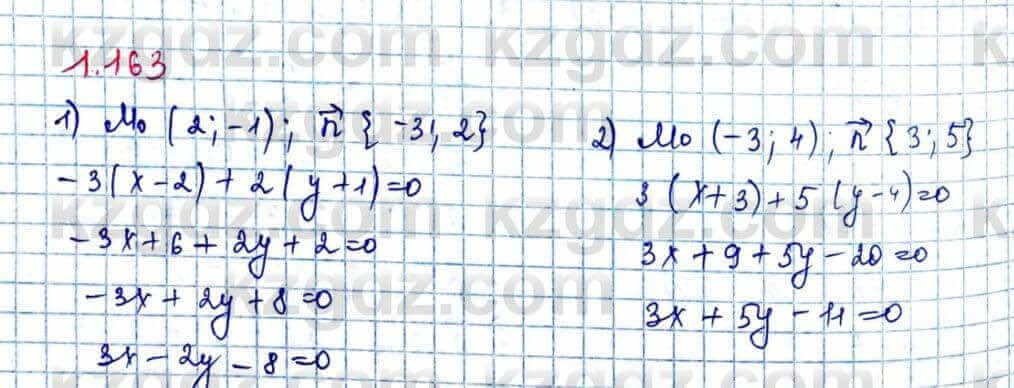 kzgdz.com kzgdz.com
1.163
1) M₀ (2; -1); n⃗ {-3; 2}
-3(x-2) + 2(y+1)=0
-3x+6+2y+2=0
-3x+2y+8=0
3x-2y-8=0
2) M₀ (-3; 4); n⃗ {3; 5}
3(x+3)+5(y-4)=0
3x+9+5y-20=0
3x+5y-11=0
kzgdz.com kzgdz.com
kzgdz.com